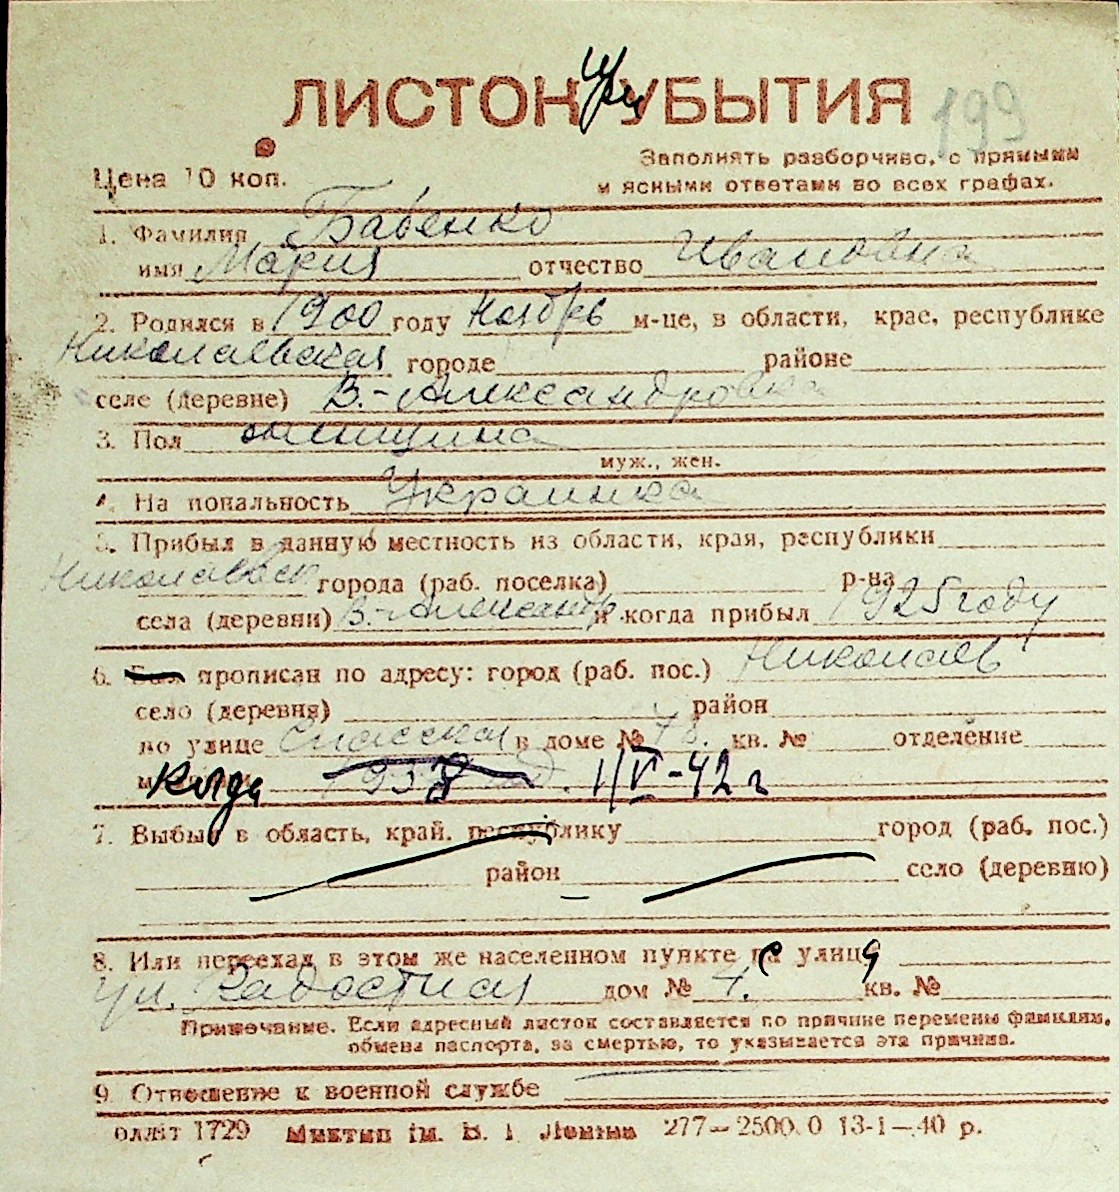 ЛИСТОК УБЫТИЯ
при
199
Цена 10 коп.
Заполнять разборчиво, с прямыми
и ясными ответами во всех графах.
1. Фамилия Бабенко
имя Мария отчество Ивановна
2. Родился в 1900 году Ноябрь м-це, в области, крае, республике
Николаевская городе районе
селе (деревне) В.-Александровка
3. Пол женщина
муж., жен.
4. На иональность Украинка
5. Прибыл в данную местность из области, края, республики
Николаевск города (раб. поселка) р-на
села (деревни) В.-Александр и когда прибыл 1925 году
6. Был прописан по адресу: город (раб. пос.) Николаев
село (деревня) район
по улице Спасская в доме № 78. кв. № отделение
Когда 1938 1/VI-42 г
7. Выбыл в область, край, республику город (раб. пос.)
район село (деревню)
8. Или переехал в этом же населенном пункте с улицы
ул. Радостная дом № 4. кв. №
Примечание. Если адресный листок составляется по причине перемены фамилии,
обмена паспорта, за смертью, то указывается эта причина.
9. Отношение к военной службе
оллiт 1729 Миктип iм. В. I Ленiна 277—2500.0 13-1—40 р.